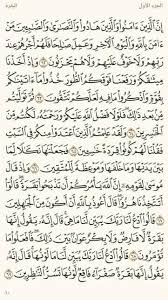 الجزء الأول
البقرة
إِنَّ ٱلَّذِينَ ءَامَنُوا۟ وَٱلَّذِينَ هَادُوا۟ وَٱلنَّصَـٰرَىٰ وَٱلصَّـٰبِـِٔينَ
مَنْ ءَامَنَ بِٱللَّهِ وَٱلْيَوْمِ ٱلْـَٔاخِرِ وَعَمِلَ صَـٰلِحًا فَلَهُمْ أَجْرُهُمْ عِندَ
رَبِّهِمْ وَلَا خَوْفٌ عَلَيْهِمْ وَلَا هُمْ يَحْزَنُونَ ٦٢ وَإِذْ أَخَذْنَا
مِيثَـٰقَكُمْ وَرَفَعْنَا فَوْقَكُمُ ٱلطُّورَ خُذُوا۟ مَآ ءَاتَيْنَـٰكُم
بِقُوَّةٍ وَٱذْكُرُوا۟ مَا فِيهِ لَعَلَّكُمْ تَتَّقُونَ ٦٣ ثُمَّ تَوَلَّيْتُم
مِّنۢ بَعْدِ ذَٰلِكَ فَلَوْلَا فَضْلُ ٱللَّهِ عَلَيْكُمْ وَرَحْمَتُهُۥ لَكُنتُم
مِّنَ ٱلْخَـٰسِرِينَ ٦٤ وَلَقَدْ عَلِمْتُمُ ٱلَّذِينَ ٱعْتَدَوْا۟ مِنكُمْ فِى ٱلسَّبْتِ
فَقُلْنَا لَهُمْ كُونُوا۟ قِرَدَةً خَـٰسِـِٔينَ ٦٥ فَجَعَلْنَـٰهَا نَكَـٰلًا لِّمَا
بَيْنَ يَدَيْهَا وَمَا خَلْفَهَا وَمَوْعِظَةً لِّلْمُتَّقِينَ ٦٦ وَإِذْ قَالَ
مُوسَىٰ لِقَوْمِهِۦٓ إِنَّ ٱللَّهَ يَأْمُرُكُمْ أَن تَذْبَحُوا۟ بَقَرَةً قَالُوٓا۟
أَتَتَّخِذُنَا هُزُوًا قَالَ أَعُوذُ بِٱللَّهِ أَنْ أَكُونَ مِنَ ٱلْجَـٰهِلِينَ ٦٧
قَالُوا۟ ٱدْعُ لَنَا رَبَّكَ يُبَيِّن لَّنَا مَا هِىَ قَالَ إِنَّهُۥ يَقُولُ إِنَّهَا
بَقَرَةٌ لَّا فَارِضٌ وَلَا بِكْرٌ عَوَانٌۢ بَيْنَ ذَٰلِكَ فَٱفْعَلُوا۟ مَا
تُؤْمَرُونَ ٦٨ قَالُوا۟ ٱدْعُ لَنَا رَبَّكَ يُبَيِّن لَّنَا مَا لَوْنُهَا قَالَ إِنَّهُۥ يَقُولُ إِنَّهَا
بَقَرَةٌ صَفْرَآءُ فَاقِعٌ لَّوْنُهَا تَسُرُّ ٱلنَّـٰظِرِينَ ٦٩
١٠